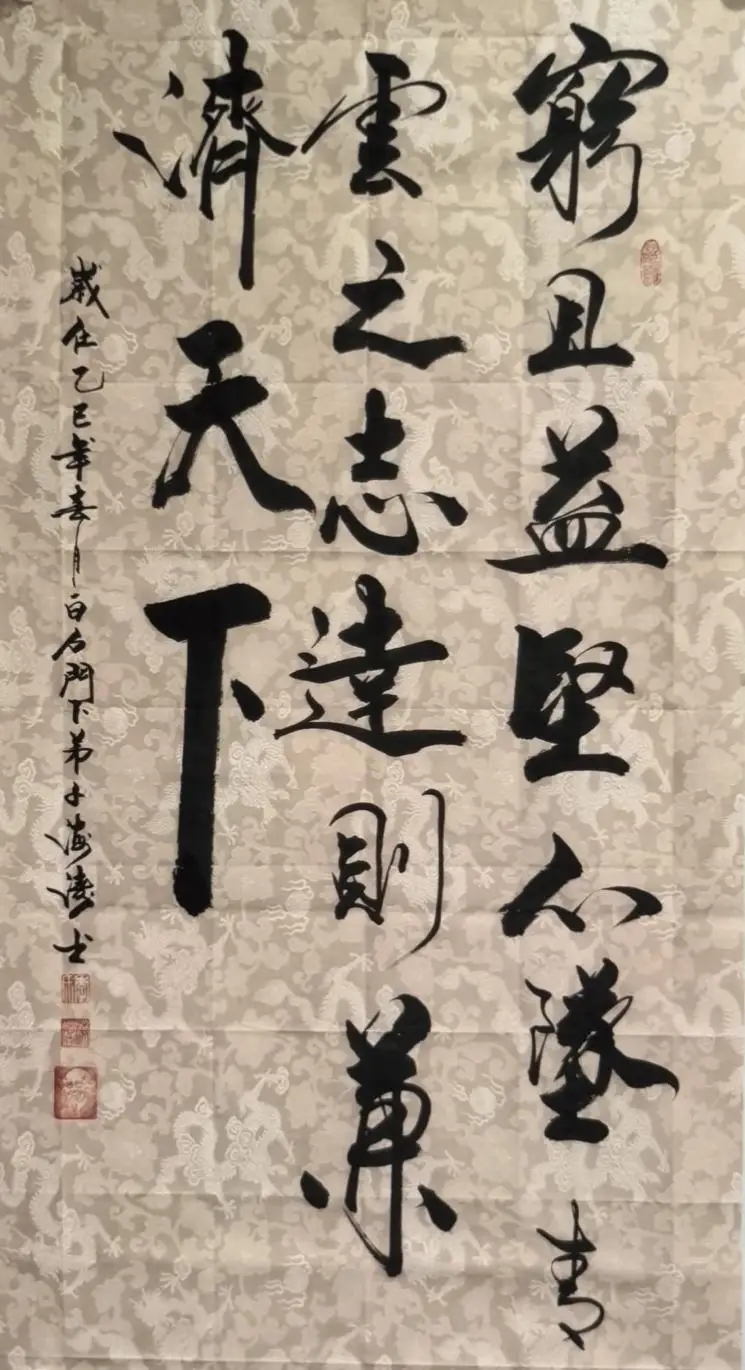 窮且益堅不墜青
雲之志達則兼
濟天下
歲在乙巳年春月白石門下弟子海濤書